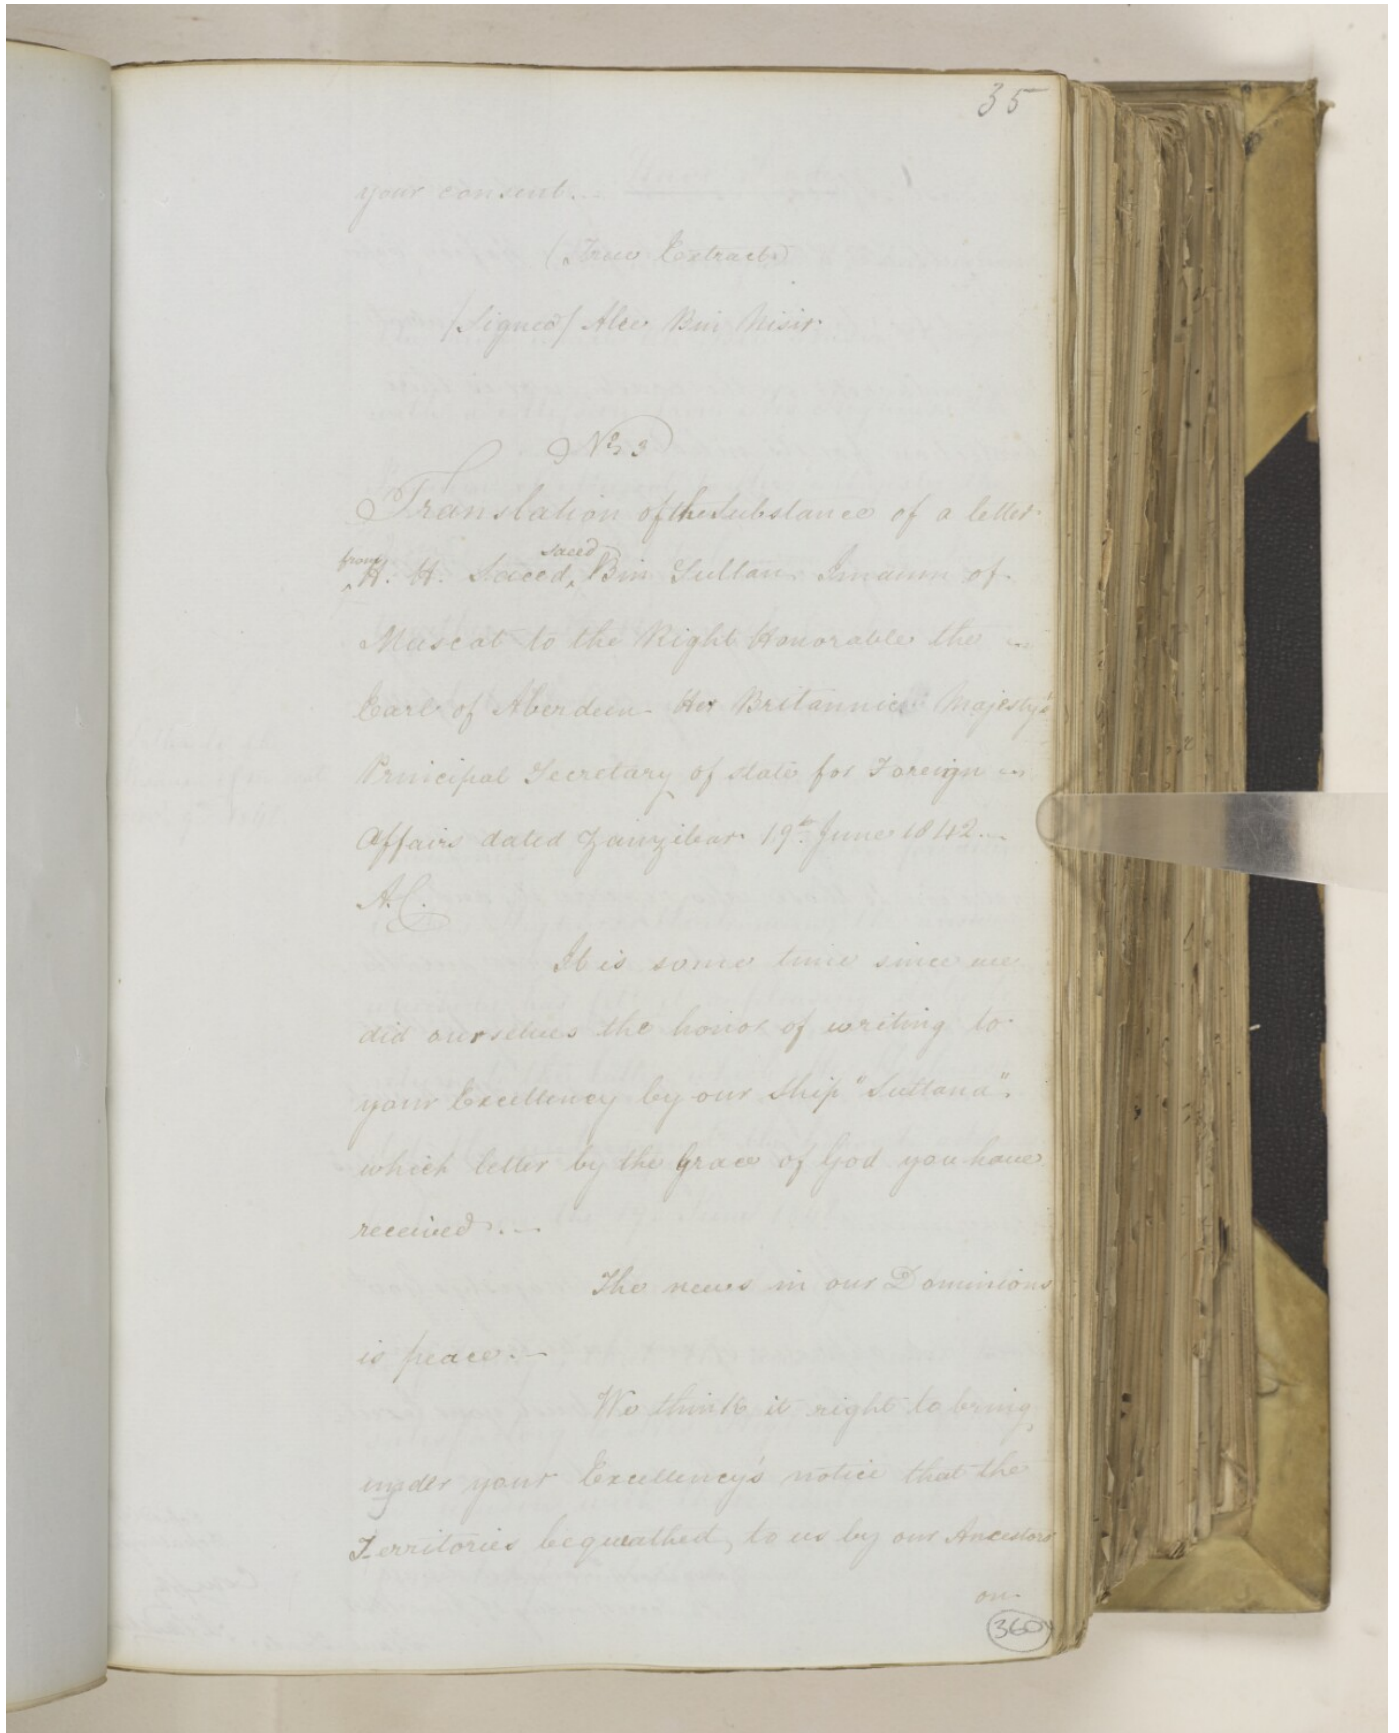 35
your consent.
(True Extract)
(Signed) Alee Bin Nisir
No 3
Translation of the Substance of a letter
from H. H. Saeed, Saeed Bin Sultan Imaum of
Muscat to the Right Honorable the
Earl of Aberdeen Her Britannic Majesty's
Principal Secretary of state for Foreign
Affairs dated Zanzibar 19th June 1842
A.C.
It is some time since we
did ourselves the honor of writing to
your Excellency by our Ship "Sultana",
which letter by the Grace of God you have
received.
The news in our Dominions
is peace.
We think it right to bring
under your Excellency's notice that the
Territories bequeathed, to us by our Ancestors
on
360